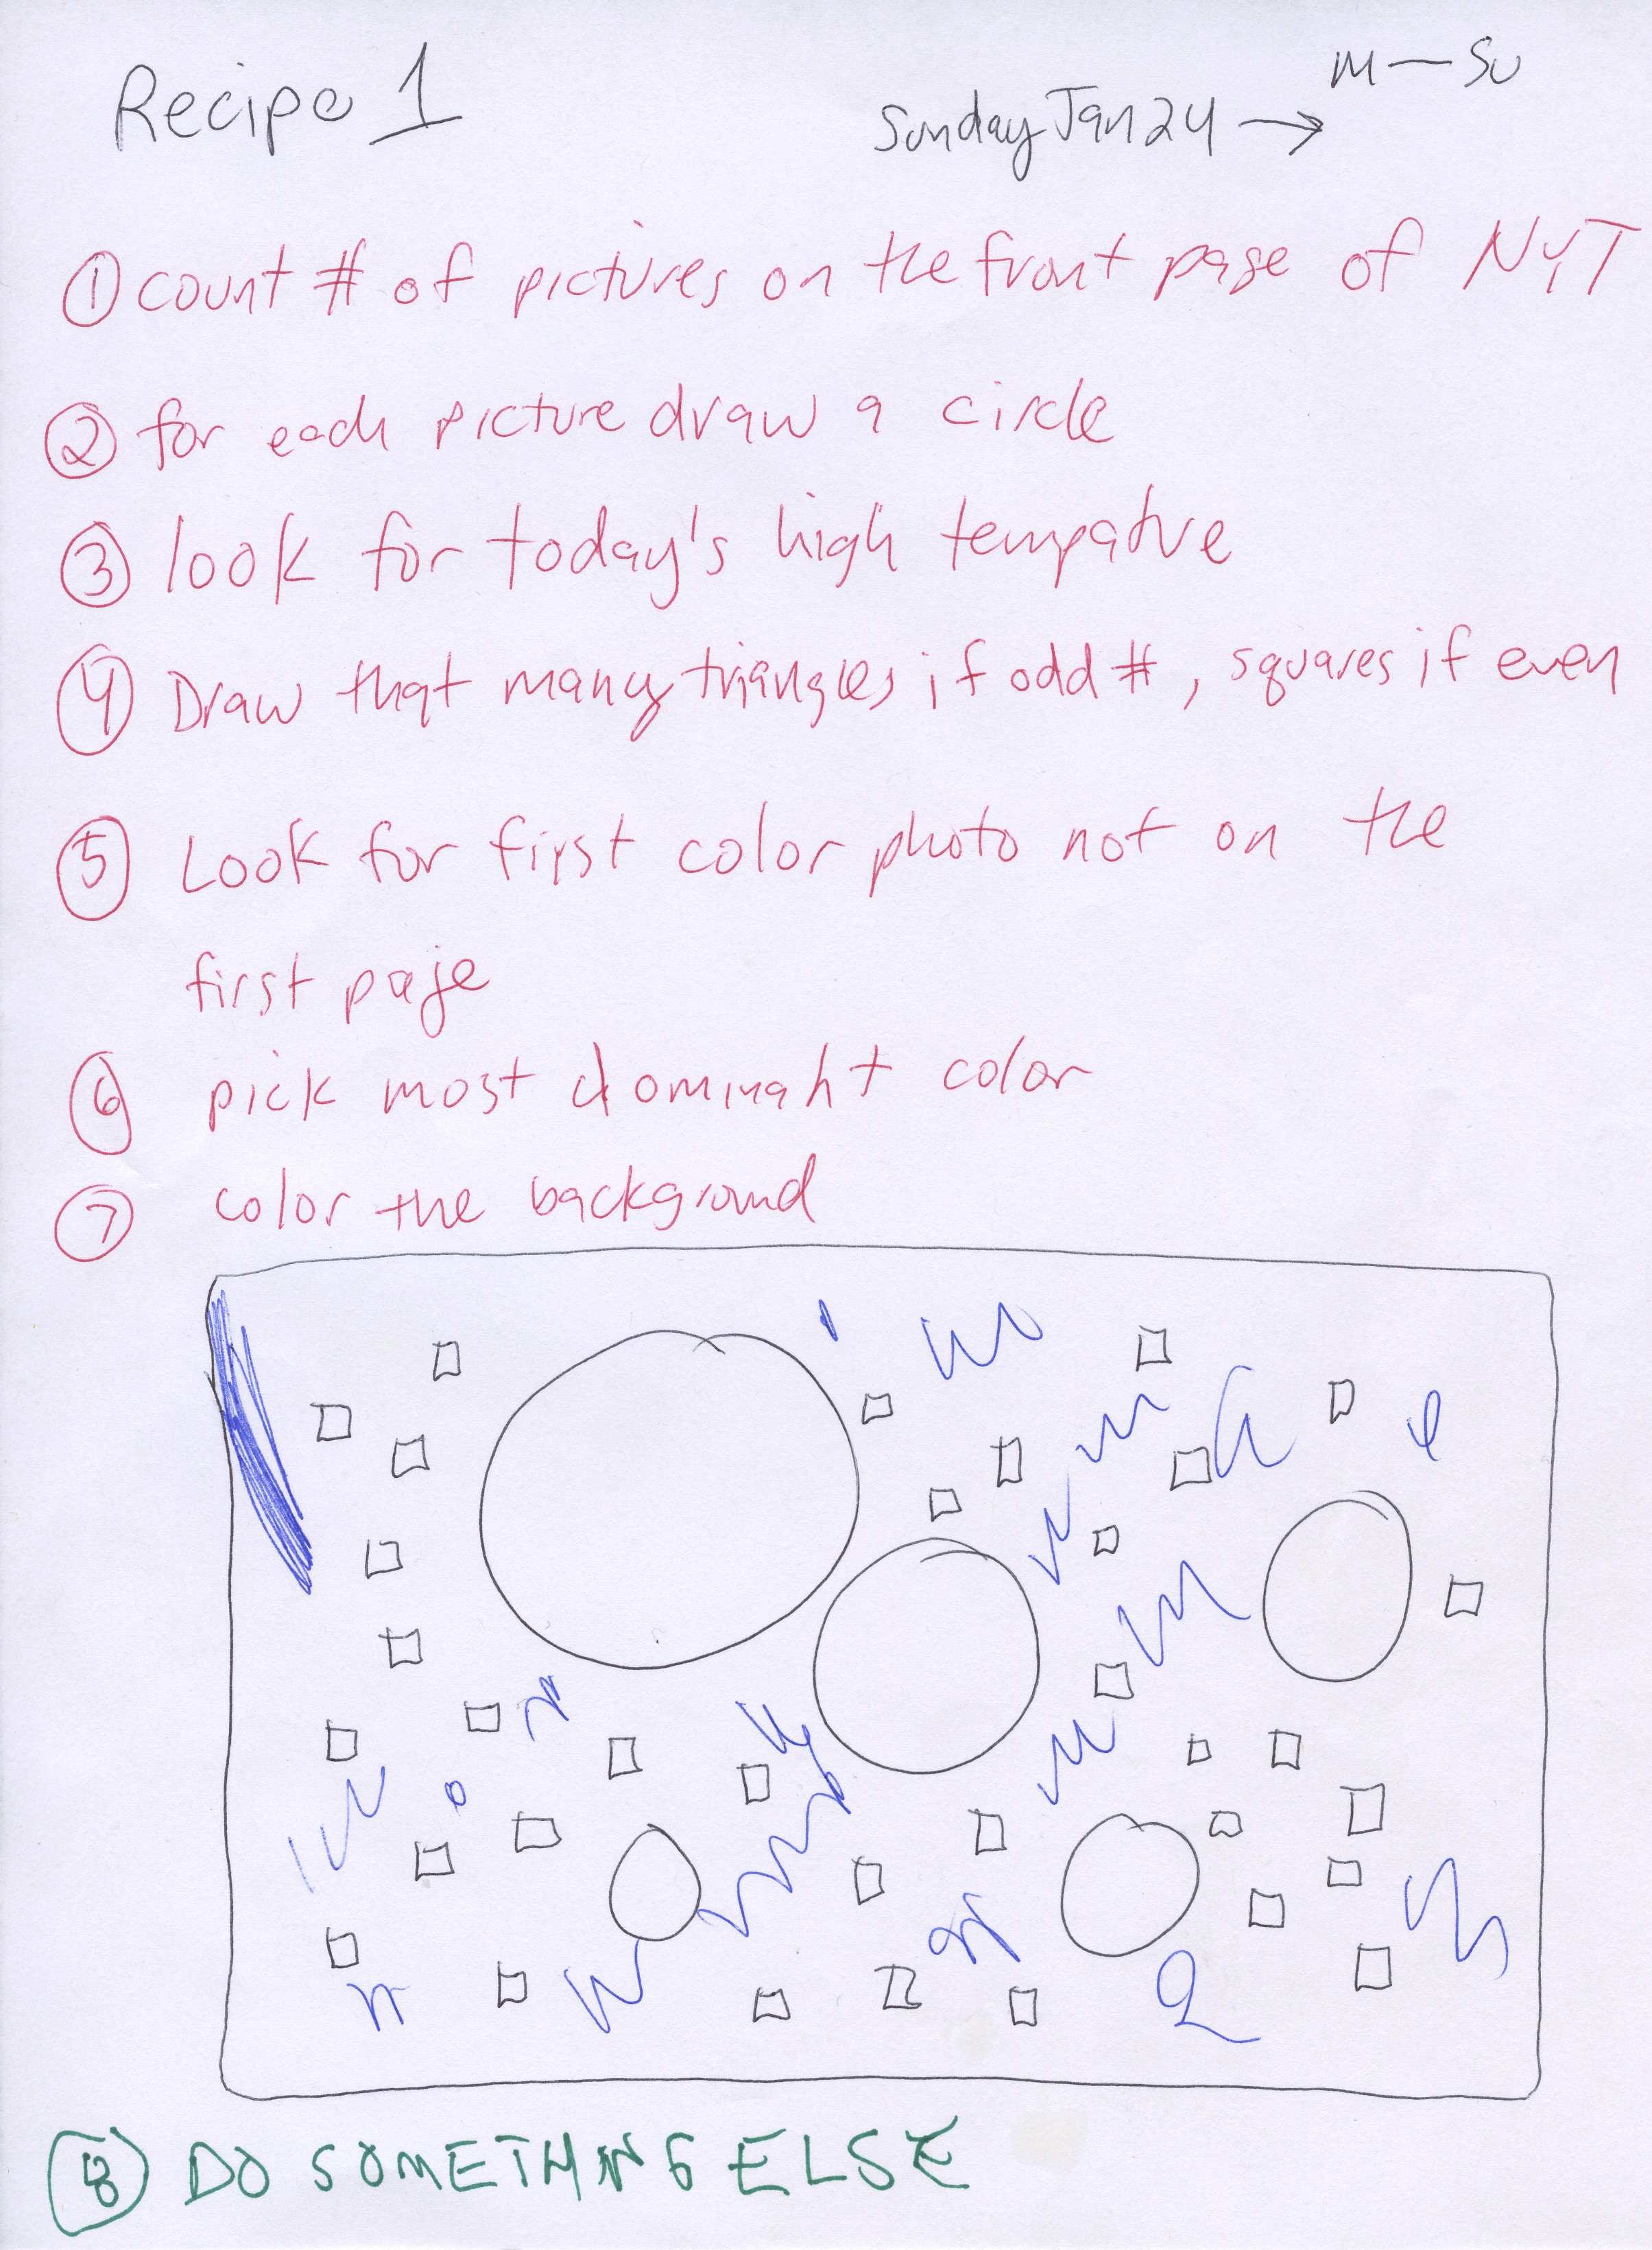 Recipe 1
M — Su
Sunday Jan 24 →
① count # of pictures on the front page of NYT
② for each picture draw a circle
③ look for today's high tempature
④ Draw that many triangles if odd #, squares if even
⑤ Look for first color photo not on the
first page
⑥ pick most dominant color
⑦ color the background
⑧ DO SOMETHING ELSE